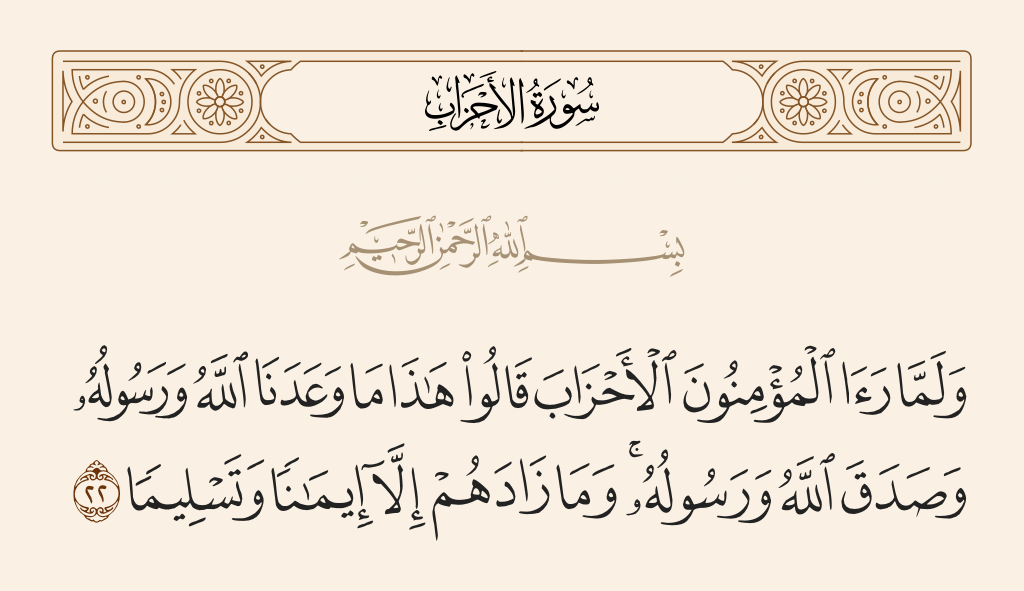 سُورَةُ الأَحْزَابِ
بِسْمِ ٱللَّهِ ٱلرَّحْمَٰنِ ٱلرَّحِيمِ
وَلَمَّا رَءَا ٱلْمُؤْمِنُونَ ٱلْأَحْزَابَ قَالُوا۟ هَٰذَا مَا وَعَدَنَا ٱللَّهُ وَرَسُولُهُۥ
وَصَدَقَ ٱللَّهُ وَرَسُولُهُۥ ۚ وَمَا زَادَهُمْ إِلَّآ إِيمَٰنًا وَتَسْلِيمًا ٢٢